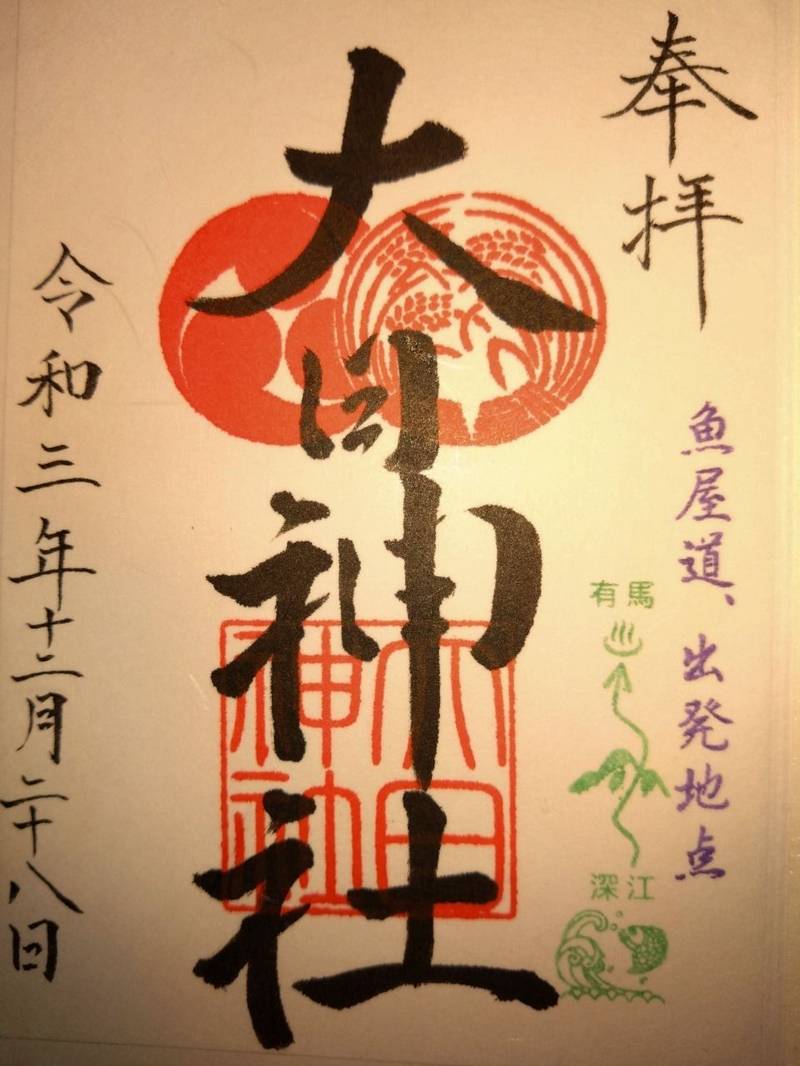 奉拝
魚屋道、出発地点
有馬
深江
大日神社
大日神社
令和三年十二月二十八日